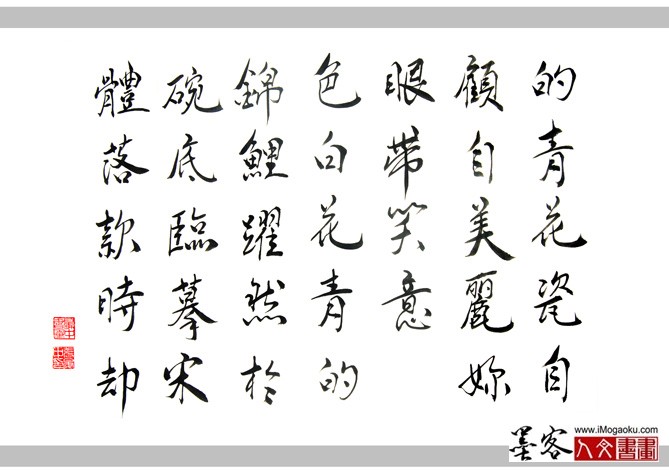 的青花瓷自
顧自美麗妳
眼帶笑意
色白花青的
錦鯉躍然於
碗底臨摹宋
體落款時却
墨客
www.iMogaoku.com
人文書畫